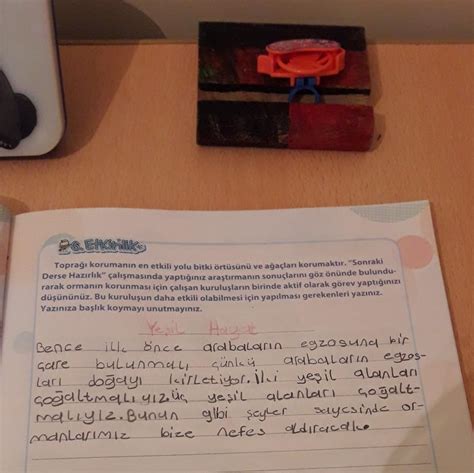 6. Etkinlik
Toprağı korumanın en etkili yolu bitki örtüsünü ve ağaçları korumaktır. "Sonraki
Derse Hazırlık" çalışmasında yaptığınız araştırmanın sonuçlarını göz önünde bulundu-
rarak ormanın korunması için çalışan kuruluşların birinde aktif olarak görev yaptığınızı
düşününüz. Bu kuruluşun daha etkili olabilmesi için yapılması gerekenleri yazınız.
Yazınıza başlık koymayı unutmayınız.
Yeşil Hayat
Bence ilk önce arabaların egzosuna bir
çare bulunmalı çünkü arabaların egzos-
ları doğayı kirletiyor. İki yeşil alanları
çoğaltmalıyız üç yeşil alanları çoğalt-
malıyız. Bunun gibi şeyler sayesinde or-
manlarımız bize nefes aldıracak.